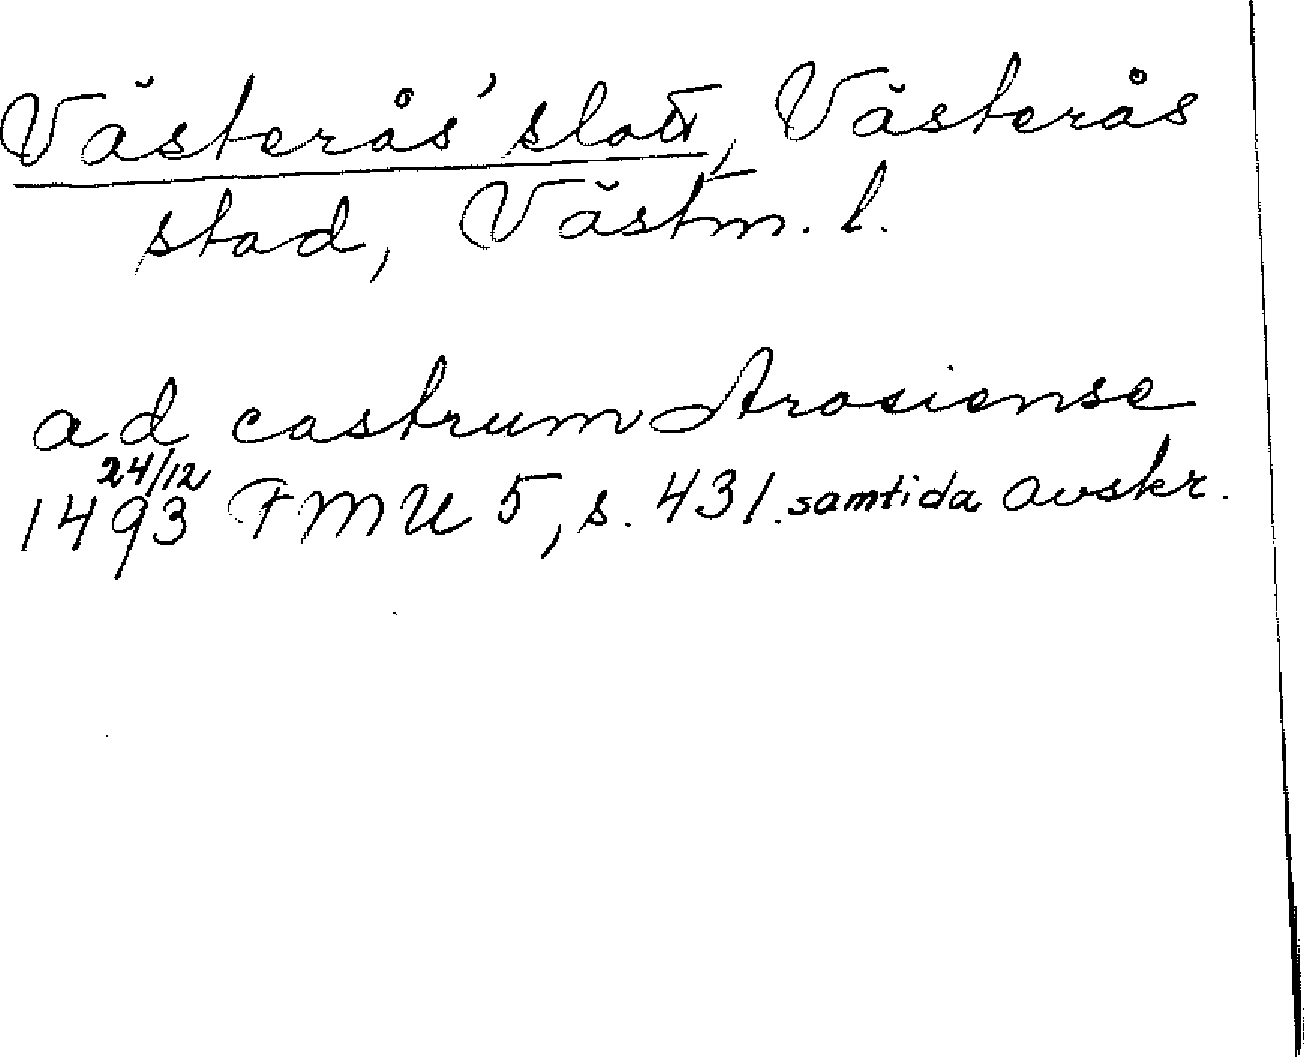 Västerås' slott, Västerås
stad, Västm. l.
ad castrum Arosiense
24/12
1493 FMU 5, s. 431. samtida avskr.